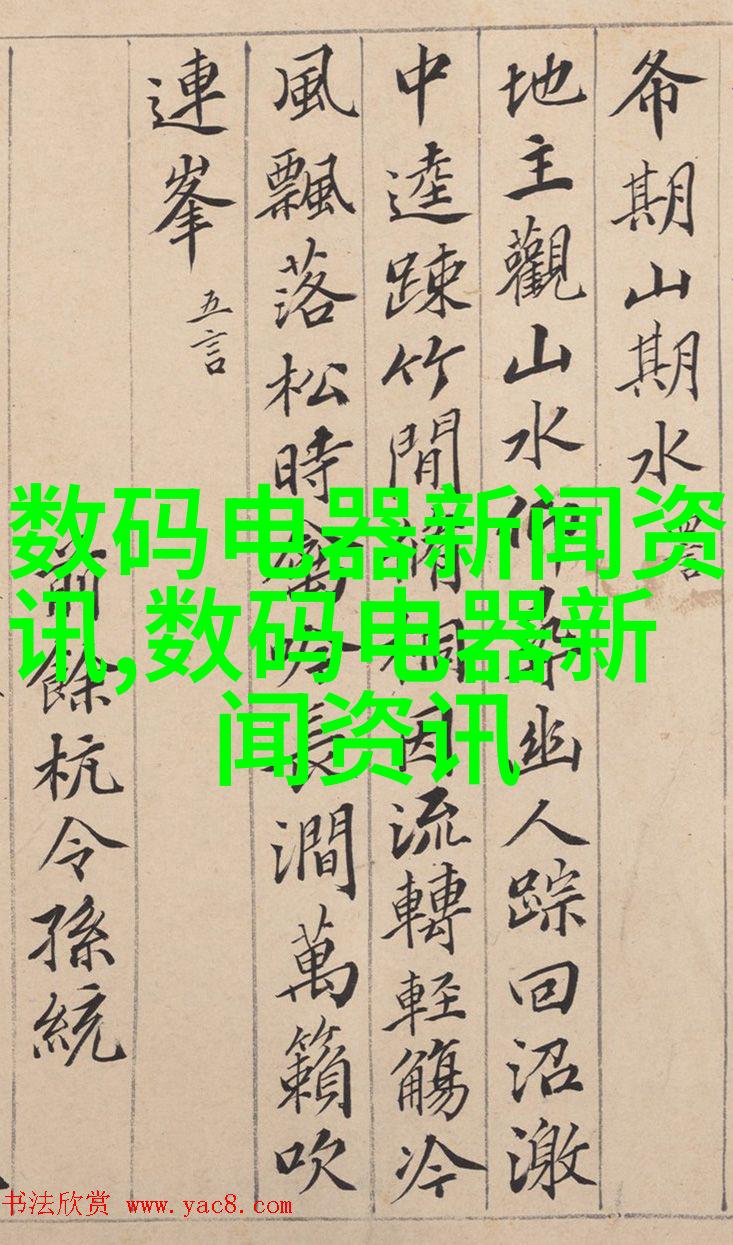 希期山期水
地主觀山水仰尋幽人踪回沼激
中逵踈竹間脩桐因流轉輕觴冷
風飄落松時禽吟長澗萬籟吹
連峯 五言
前餘杭令孫統
数码电器新闻资
讯,数码电器新
闻资讯
书法欣赏 www.yac8.com